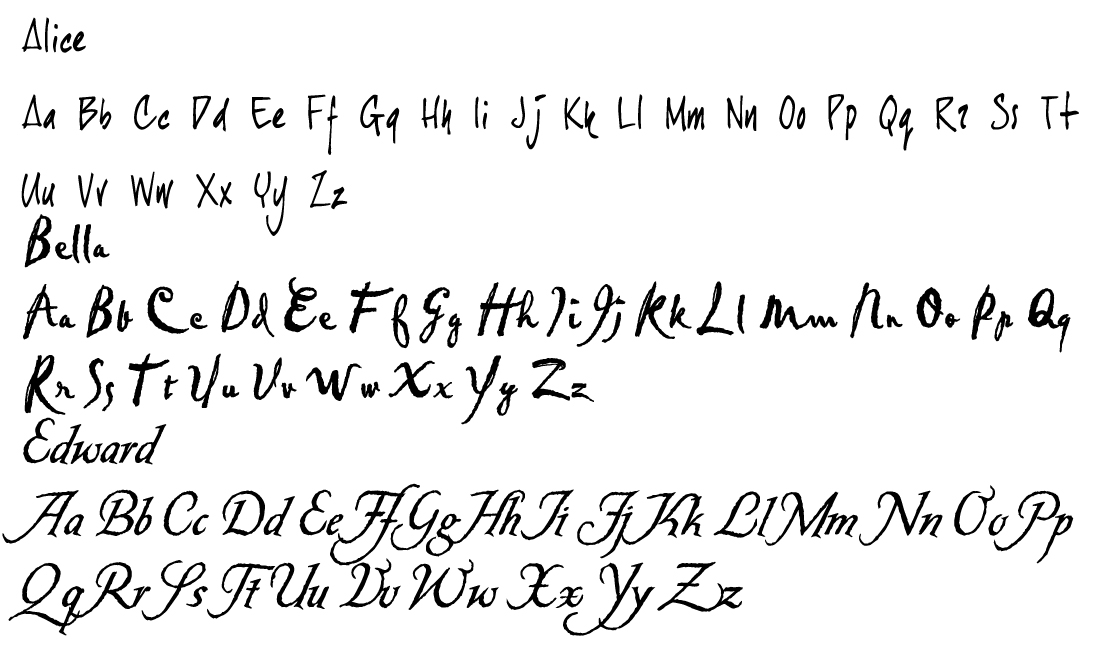 Alice
Aa Bb Cc Dd Ee Ff Gg Hh Ii Jj Kk Ll Mm Nn Oo Pp Qq Rr Ss Tt
Uu Vv Ww Xx Yy Zz
Bella
Aa Bb Cc Dd Ee Ff Gg Hh Ii Jj Kk Ll Mm Nn Oo Pp Qq
Rr Ss Tt Uu Vv Ww Xx Yy Zz
Edward
Aa Bb Cc Dd Ee Ff Gg Hh Ii Jj Kk Ll Mm Nn Oo Pp
Qq Rr Ss Tt Uu Vv Ww Xx Yy Zz